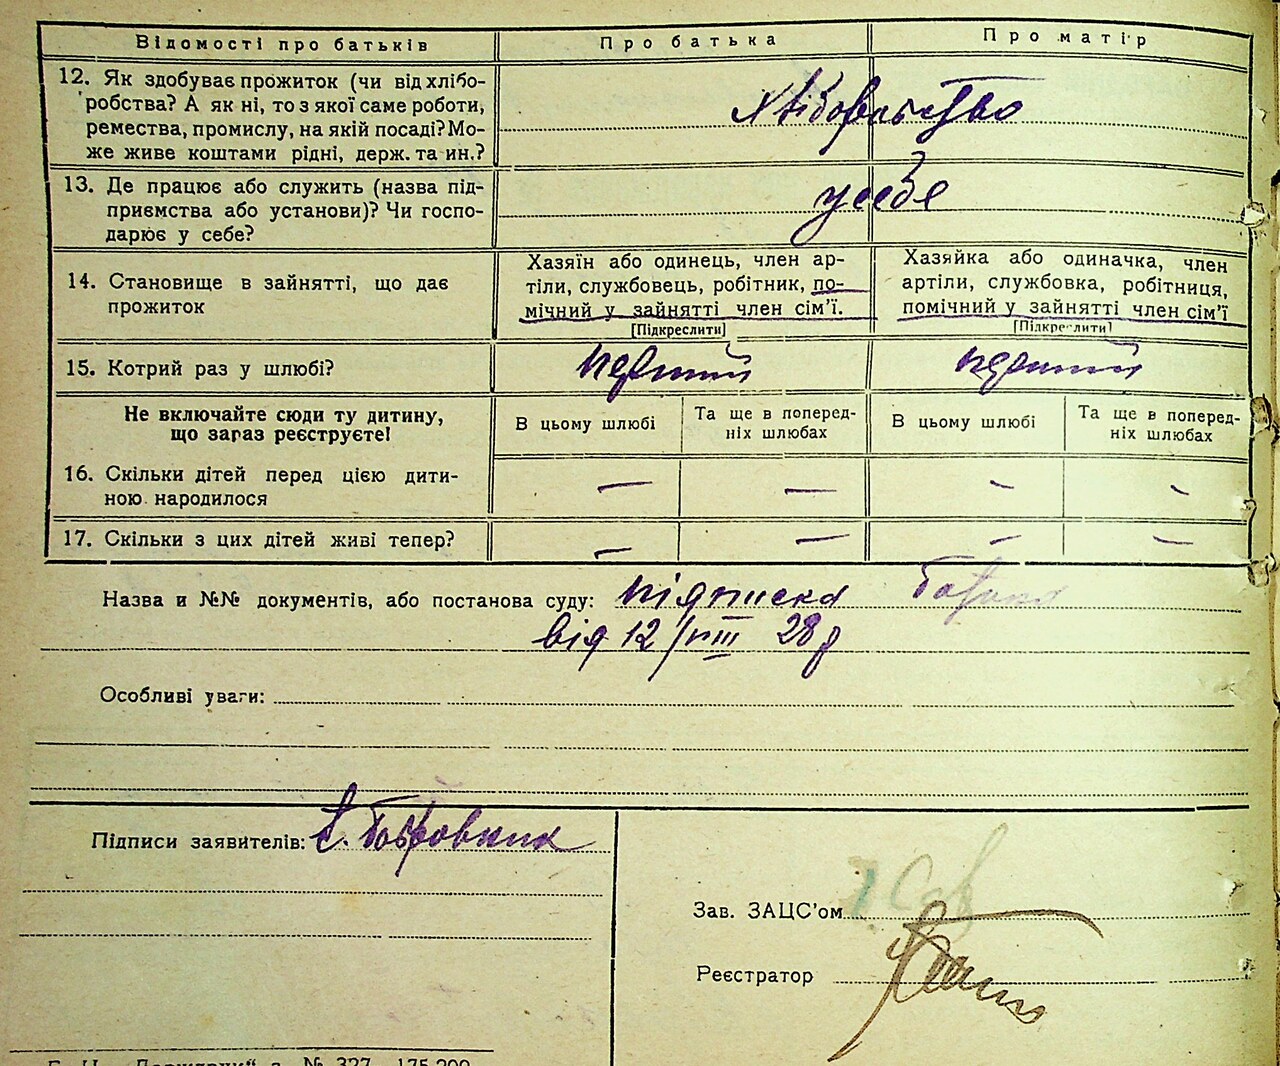 Відомості про батьків Про батька Про матір
12. Як здобуває прожиток (чи від хлібо-
робства? А як ні, то з якої саме роботи,
ремества, промислу, на якій посаді? Мо-
же живе коштами рідні, держ. та ин.?
хліборобство
13. Де працює або служить (назва під-
приємства або установи)? Чи госпо-
дарює у себе?
у себе
14. Становище в зайнятті, що дає
прожиток
Хазяїн або одинець, член ар-
тілі, службовець, робітник, по-
мічний у зайнятті член сім’ї.
[Підкреслити]
Хазяйка або одиначка, член
артіли, службовка, робітниця,
помічний у зайнятті член сім’ї
[Підкреслити]
15. Котрий раз у шлюбі? перший перший
Не включайте сюди ту дитину,
що зараз реєструєте!
В цьому шлюбі
Та ще в поперед-
ніх шлюбах
В цьому шлюбі
Та ще в поперед-
ніх шлюбах
16. Скільки дітей перед цією дити-
ною народилося
— — — —
17. Скільки з цих дітей живі тепер? — — — —
Назва и №№ документів, або постанова суду: підписка
від 12/VIII 28 р
Особливі уваги:
Підписи заявителів:
Зав. ЗАЦС’ом
Реєстратор
№ 327—175.200